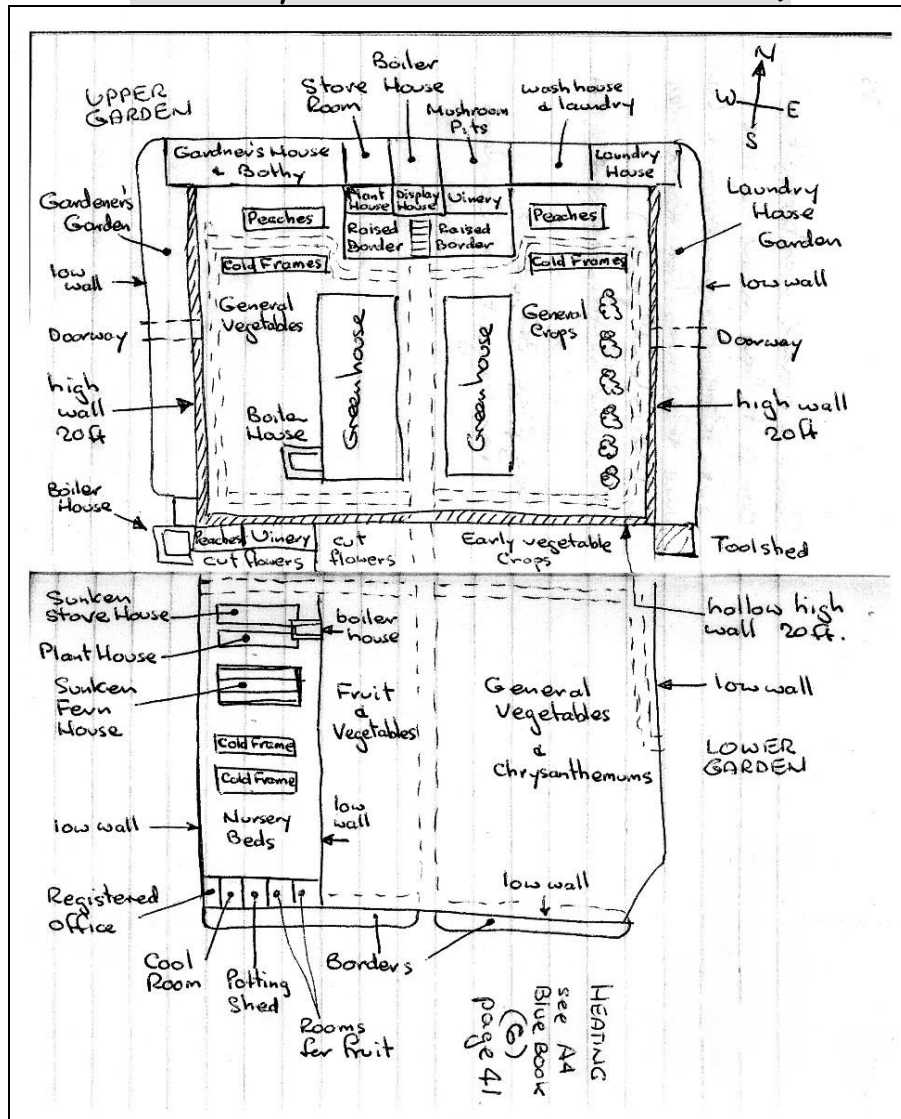 N
W
E
S
UPPER
GARDEN
Store
Room
Boiler
House
Mushroom
Pits
wash house
& laundry
Gardner's House
& Bothy
Laundry
House
Gardener's
Garden
Plant
House
Display
House
Vinery
Peaches
Peaches
Raised
Border
Raised
Border
Laundry
House
Garden
low
wall
Cold Frames
Cold Frames
low wall
General
Vegetables
General
Crops
Doorway
Doorway
Greenhouse
Greenhouse
high
wall
20ft
high wall
20ft
Boiler
House
Boiler
House
Peaches
Vinery
cut flowers
cut
flowers
Early vegetable
Crops
Toolshed
Sunken
Stove House
boiler
house
hollow high
wall 20ft.
Plant House
Sunken
Fern
House
Fruit
&
Vegetables
General
Vegetables
&
Chrysanthemums
low wall
LOWER
GARDEN
Cold Frame
Cold Frame
Nursery
Beds
low wall
low
wall
low wall
Registered
Office
Cool
Room
Potting
Shed
Rooms
for Fruit
Borders
HEATING
see A4
Blue Book
(6)
page 41